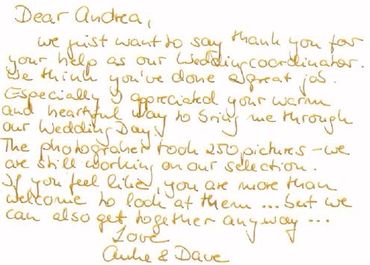 Dear Andrea,
we just want to say thank you for
your help as our Weddingcoordinator.
We think you've done a great job.
Especially I appreciated your warm
and heartful way to bring me through
our Wedding Day!
The photographer took 250 pictures - we
are still working on our selection.
If you feel like, you are more than
welcome to look at them ... but we
can also get together anyway ...
Love
Anke & Dave